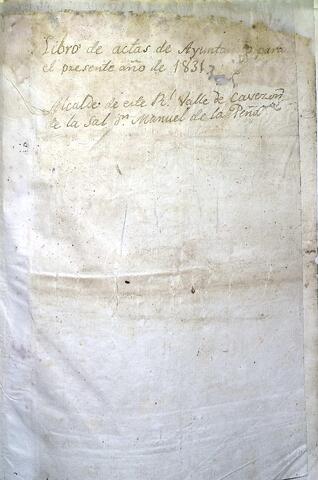 Libro de actas de Ayuntam.to para
el presente año de 1831
Alcalde de este R.l Valle de Cavezon
de la Sal D.n Manuel de la Peña